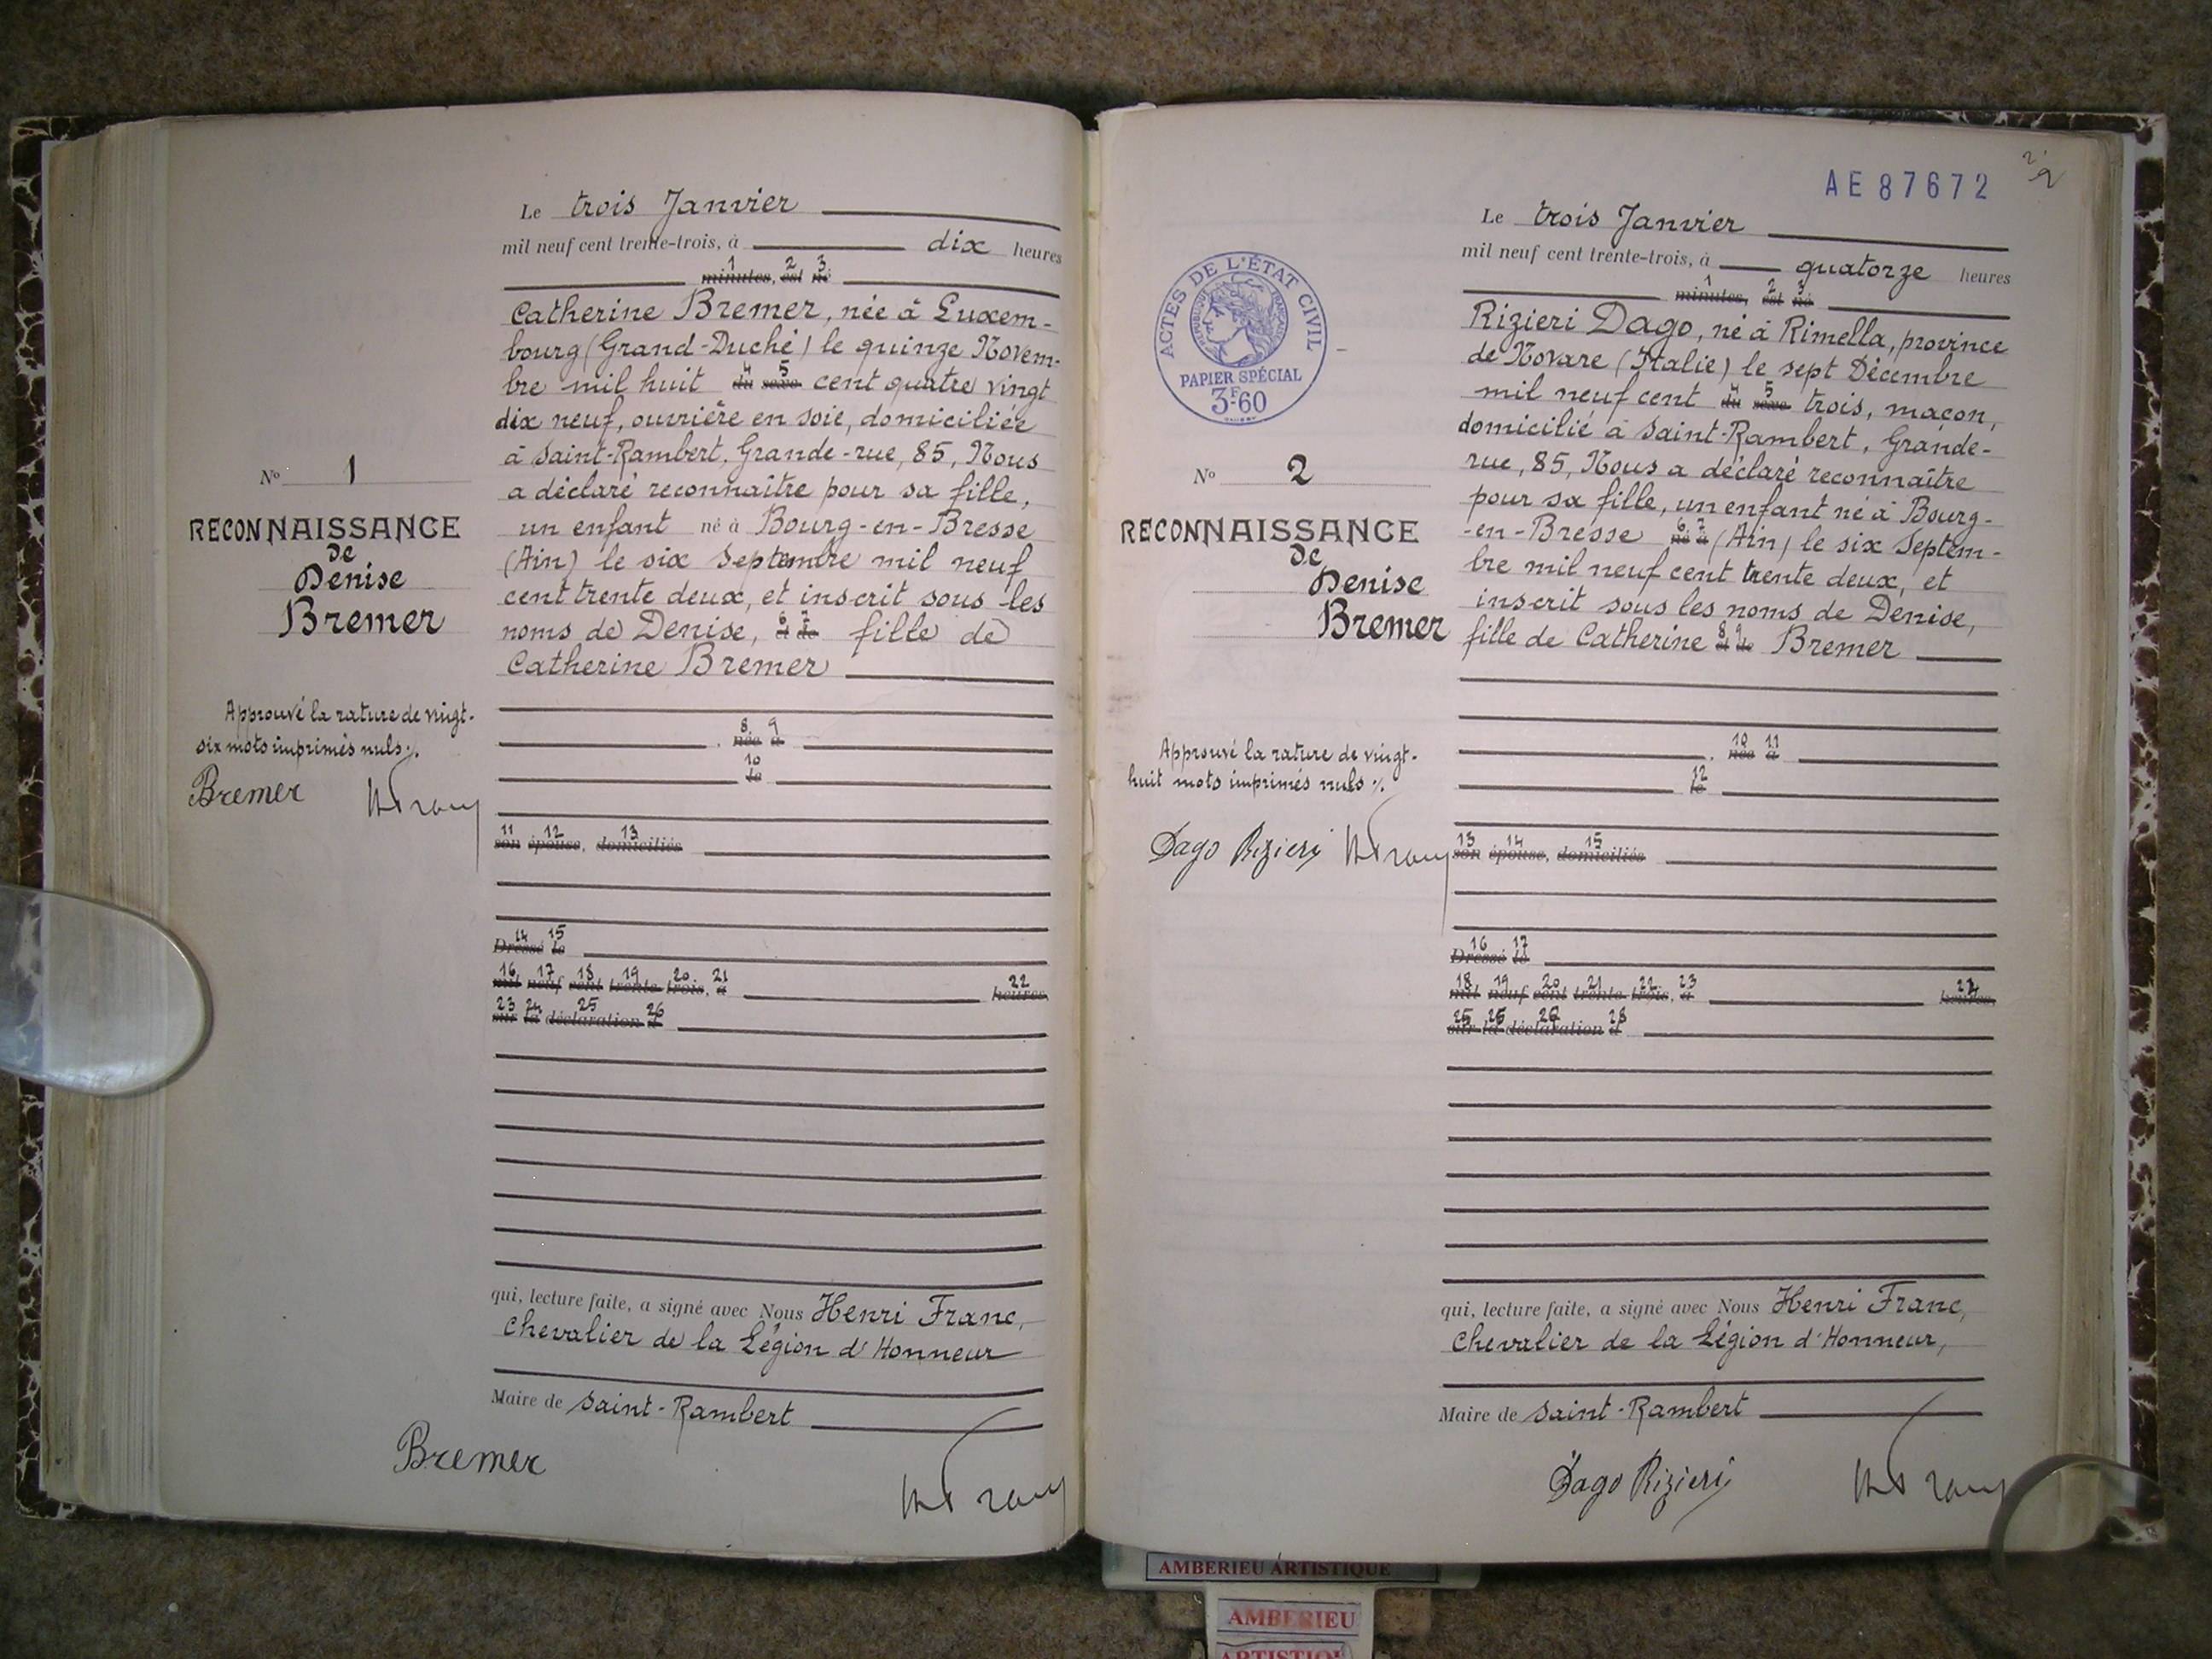 Le trois Janvier
mil neuf cent trente-trois, à dix heures
1 2 3
minutes, est né
Catherine Bremer, née à Luxem-
bourg (Grand-Duché) le quinze Novem-
4 5
bre mil huit du sexe cent quatre vingt
dix neuf, ouvrière en soie, domiciliée
à Saint-Rambert, Grande-rue, 85, Nous
a déclaré reconnaître pour sa fille,
un enfant né à Bourg-en-Bresse
(Ain) le six Septembre mil neuf
cent trente deux, et inscrit sous les
6 7
noms de Denise, et de fille de
Catherine Bremer
No 1
RECONNAISSANCE
de
Denise
Bremer
Approuvé la rature de vingt-
six mots imprimés nuls ./.
Bremer
8 9
née à
10
le
11 12 13
son épouse, domiciliés
14 15
Dressé le
16 17 18 19 20 21 22
mil neuf cent trente-trois, à heures,
23 24 25 26
sur la déclaration d
qui, lecture faite, a signé avec Nous Henri Franc,
Chevalier de la Légion d'Honneur
Maire de Saint-Rambert
Bremer
AE87672
2
Le trois Janvier
mil neuf cent trente-trois, à quatorze heures
1 2 3
minutes, est né
Rizieri Dago, né à Rimella, province
de Novare (Italie) le sept Décembre
4 5
mil neuf cent du sexe trois, maçon,
domicilié à Saint-Rambert, Grande-
rue, 85, Nous a déclaré reconnaître
pour sa fille, un enfant né à Bourg-
6 7
-en-Bresse né à (Ain) le six Septem-
bre mil neuf cent trente deux, et
inscrit sous les noms de Denise,
8 9
fille de Catherine et de Bremer
ACTES DE L'ÉTAT CIVIL
RÉPUBLIQUE FRANÇAISE
PAPIER SPÉCIAL
3F60
No 2
RECONNAISSANCE
de
Denise
Bremer
Approuvé la rature de vingt-
huit mots imprimés nuls ./.
Dago Rizieri
10 11
née à
12
le
13 14 15
son épouse, domiciliés
16 17
Dressé le
18 19 20 21 22 23 24
mil neuf cent trente-trois, à heures,
25 26 27 28
sur la déclaration d
qui, lecture faite, a signé avec Nous Henri Franc,
Chevalier de la Légion d'Honneur,
Maire de Saint-Rambert
Dago Rizieri
AMBERIEU ARTISTIQUE
AMBERIEU